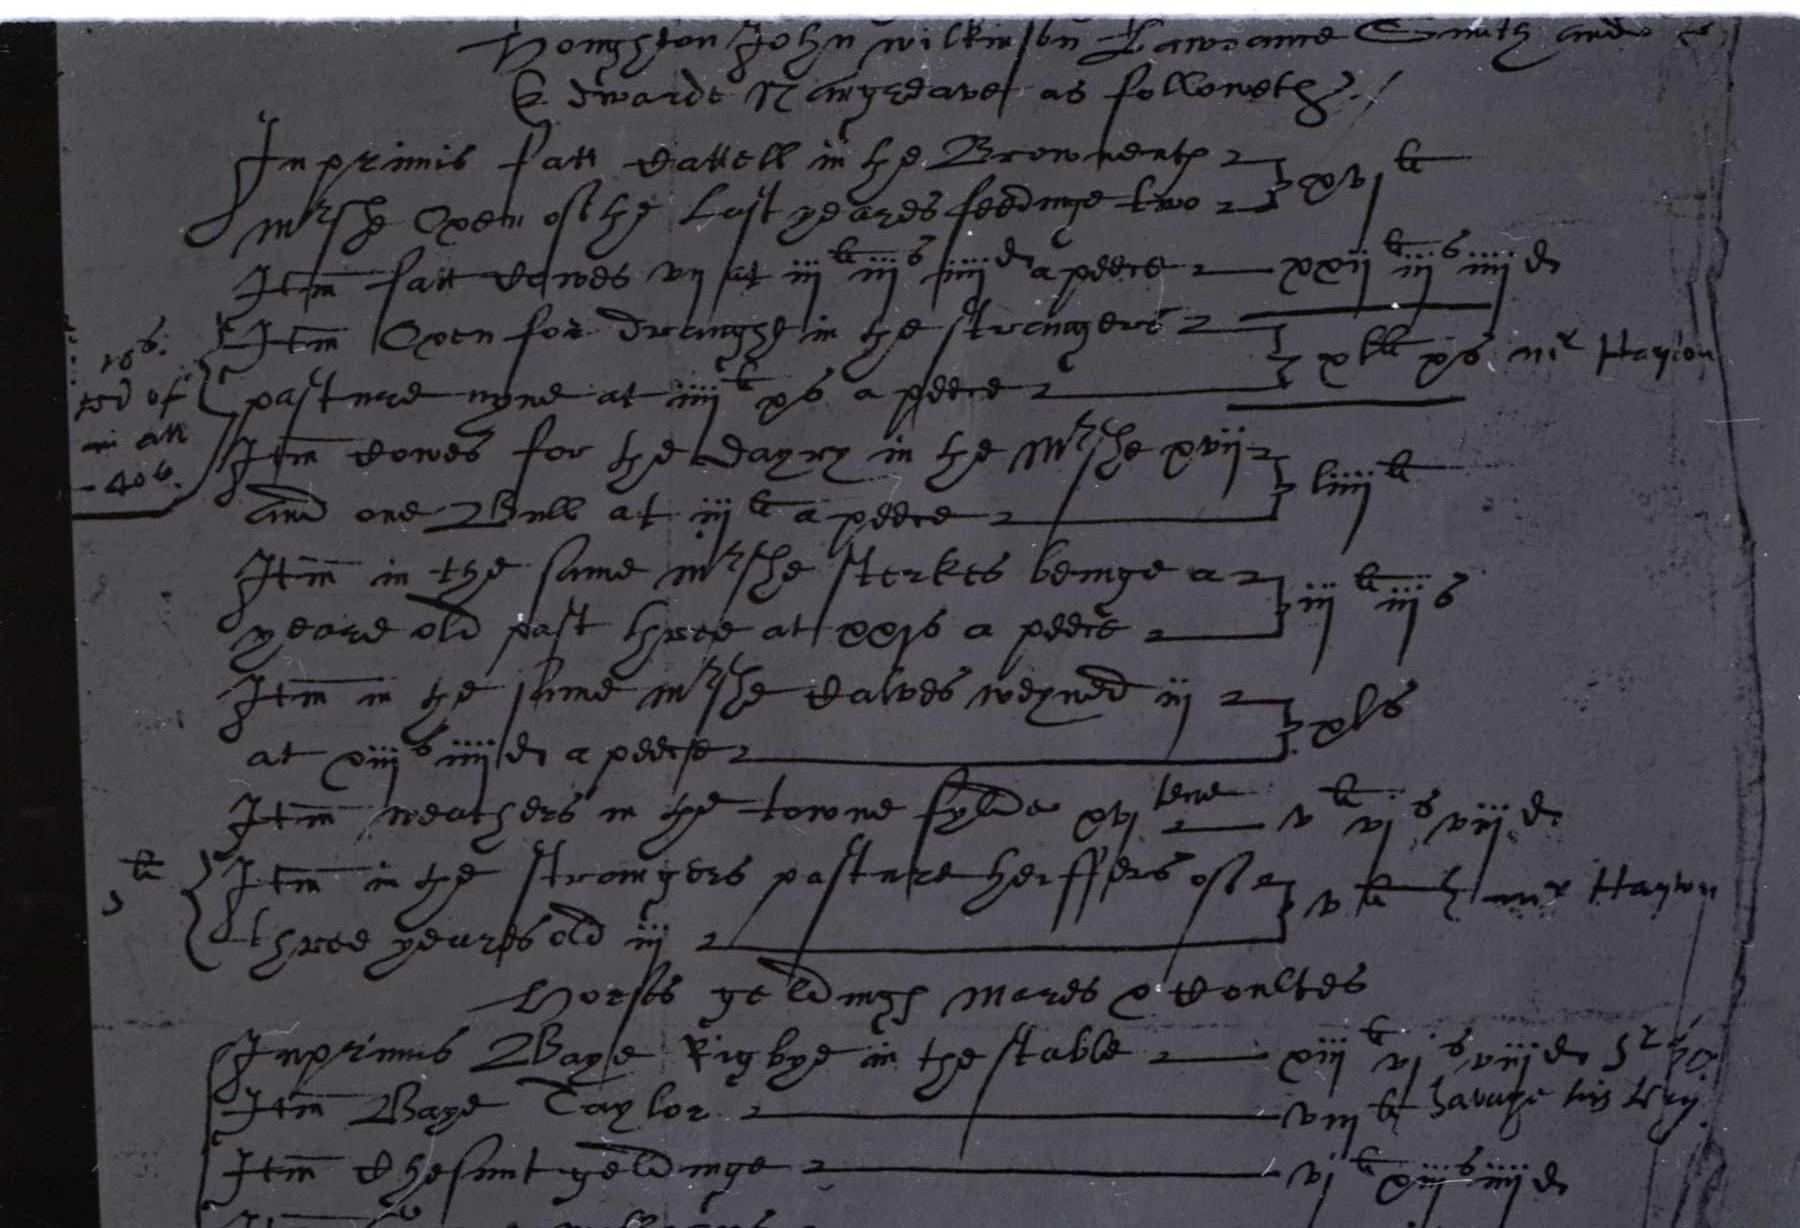 Houghton John Wilkinson Lawrance Smith and
Edwarde Hargreaves as followeth /
Inprimis fatt Cattell in the Browneníth
mrshe Oxen of the last yeares feedinge two xvj li
Itm fatt Cowes vij at iij li iij s iiij d a peece xxij li iij s iiij d
Itm Oxen for draught in the strangers
pasture nyne at iiij li xs a peece xl li xs mr Hayton
in all
40s.
Itm Cowes for the dayry in the Mrshe xvij
and one Bull at iij li a peece liiij li
Itm in the same mrshe sterkes beinge a
yeare old past three at xxjs a peece iij li iij s
Itm in the same mrshe Calves weyned iij
at xiij s iiij d a peece xls
Itm weathers in the towne fylde xvj tene v li vj s viij d
Itm in the strangers pasture heiffers of
three yeares old iij v li mr Hayton
Horses geldings mares & Coultes
Inprimis Baye Rigbye in the stable xiij li vj s viij d Sr Jo
Itm Baye Taylor viij li Savage his
Itm Chesnut geldinge vj li xiij s iiij d